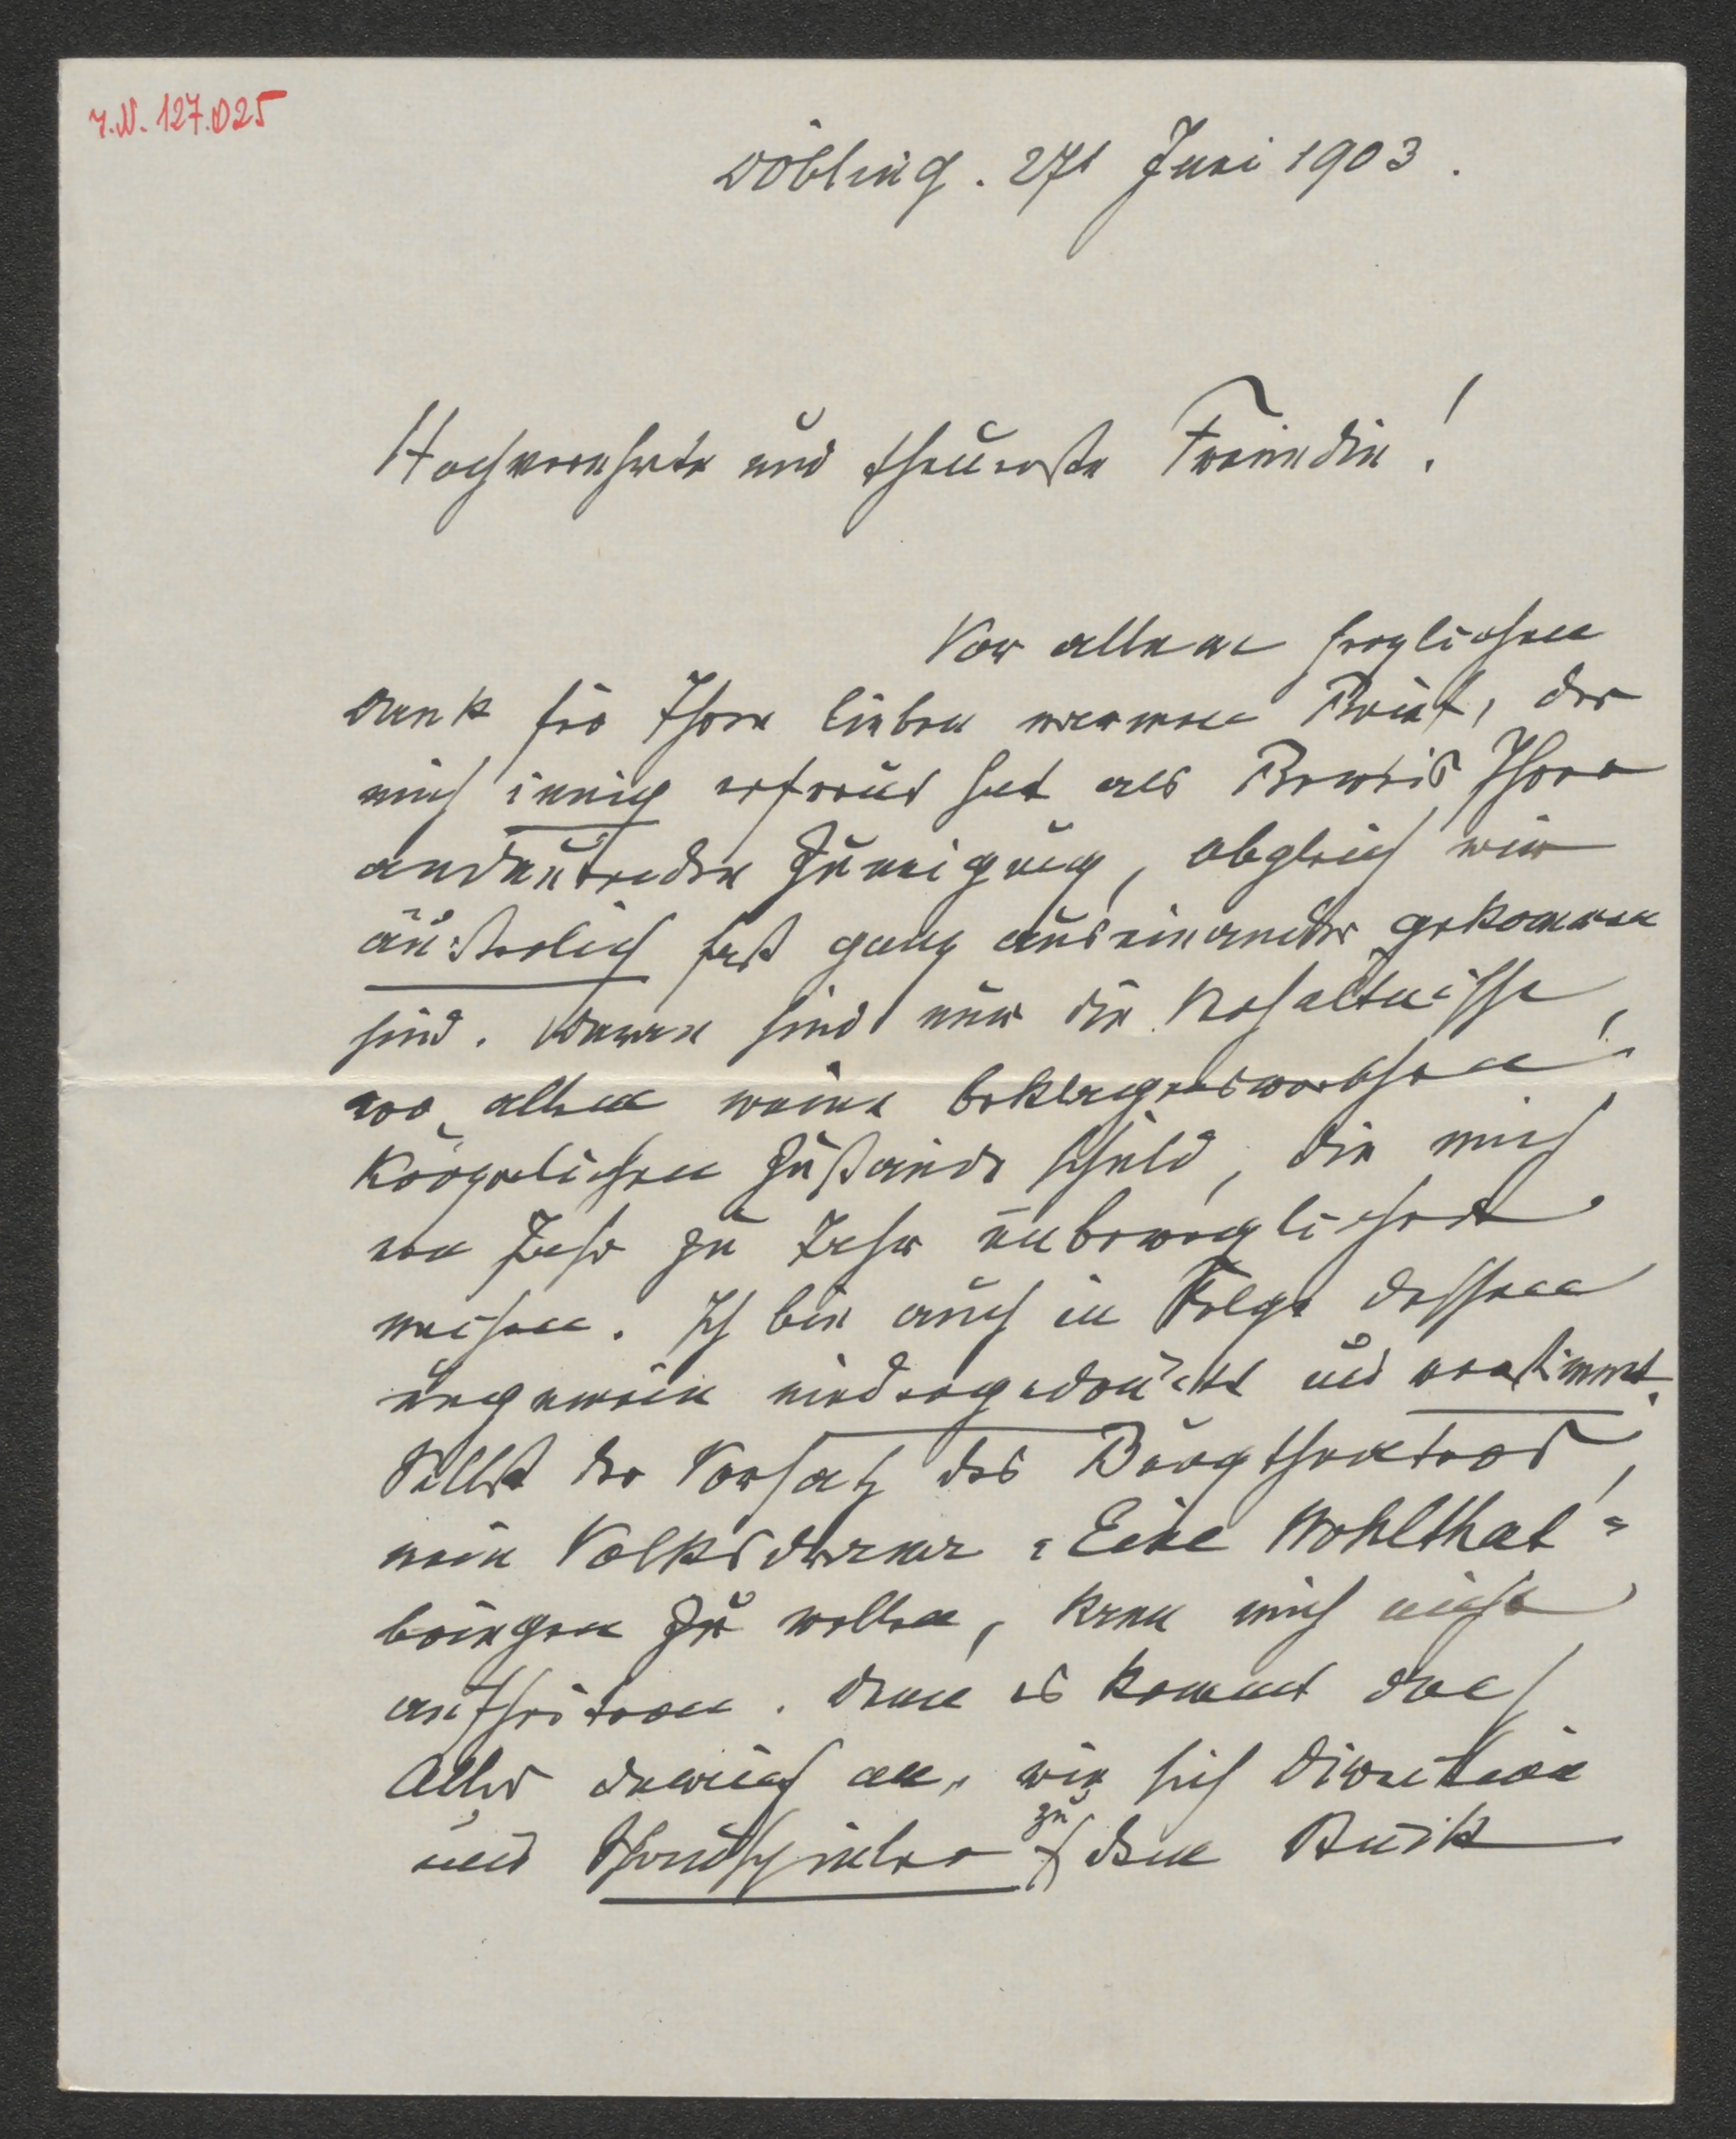 I.N. 127.025
Döbling. 27t Juni 1903.
Hochverehrte und theuerste Freundin!
Vor allem herzlichen
Dank für Ihren lieben warmen Brief, der
mich innig erfreut hat als Beweis Ihrer
andauernden Zuneigung, obgleich wir
äußerlich fast ganz auseinander gekommen
sind. Daran sind nur die Verhältnisse,
vor allem meine beklagenswerthen
körperlichen Zustände schuld, die mich
von Jahr zu Jahr unbeweglicher
machen. Ich bin auch in Folge dessen
ungemein niedergedrückt und verstimmt.
Selbst der Vorsatz des Burgtheaters,
mein Volksdrama „Eine Wohlthat"
bringen zu wollen, kann mich nicht
aufheitern. Denn es kommt doch
Alles darauf an, wie sich Direction
und Schauspieler zu dem Stück